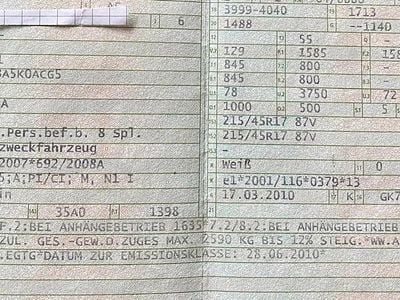 6
3A5K0ACG5
A
.Pers.bef.b. 8 Spl.
zweckfahrzeug
2007*692/2008A
5;A;PI/CI; M, N1 I
in
35A0 1398
3999-4040 1713
1488 --1140
55 -
129 1585 1585
845 800
845 800
78 3750 72
1000 500
215/45R17 87V
215/45R17 87V
-
Weiß 0
e1*2001/116*0379*13
17.03.2010 K GK7
F.2:BEI ANHÄNGEBETRIEB 1635*7.2/8.2:BEI ANHÄNGEBETRIEB
ZUL. GES.-GEW.D.ZUGES MAX. 2590 KG BIS 12% STEIG.*WW.A
.EGTG*DATUM ZUR EMISSIONSKLASSE: 28.06.2010*